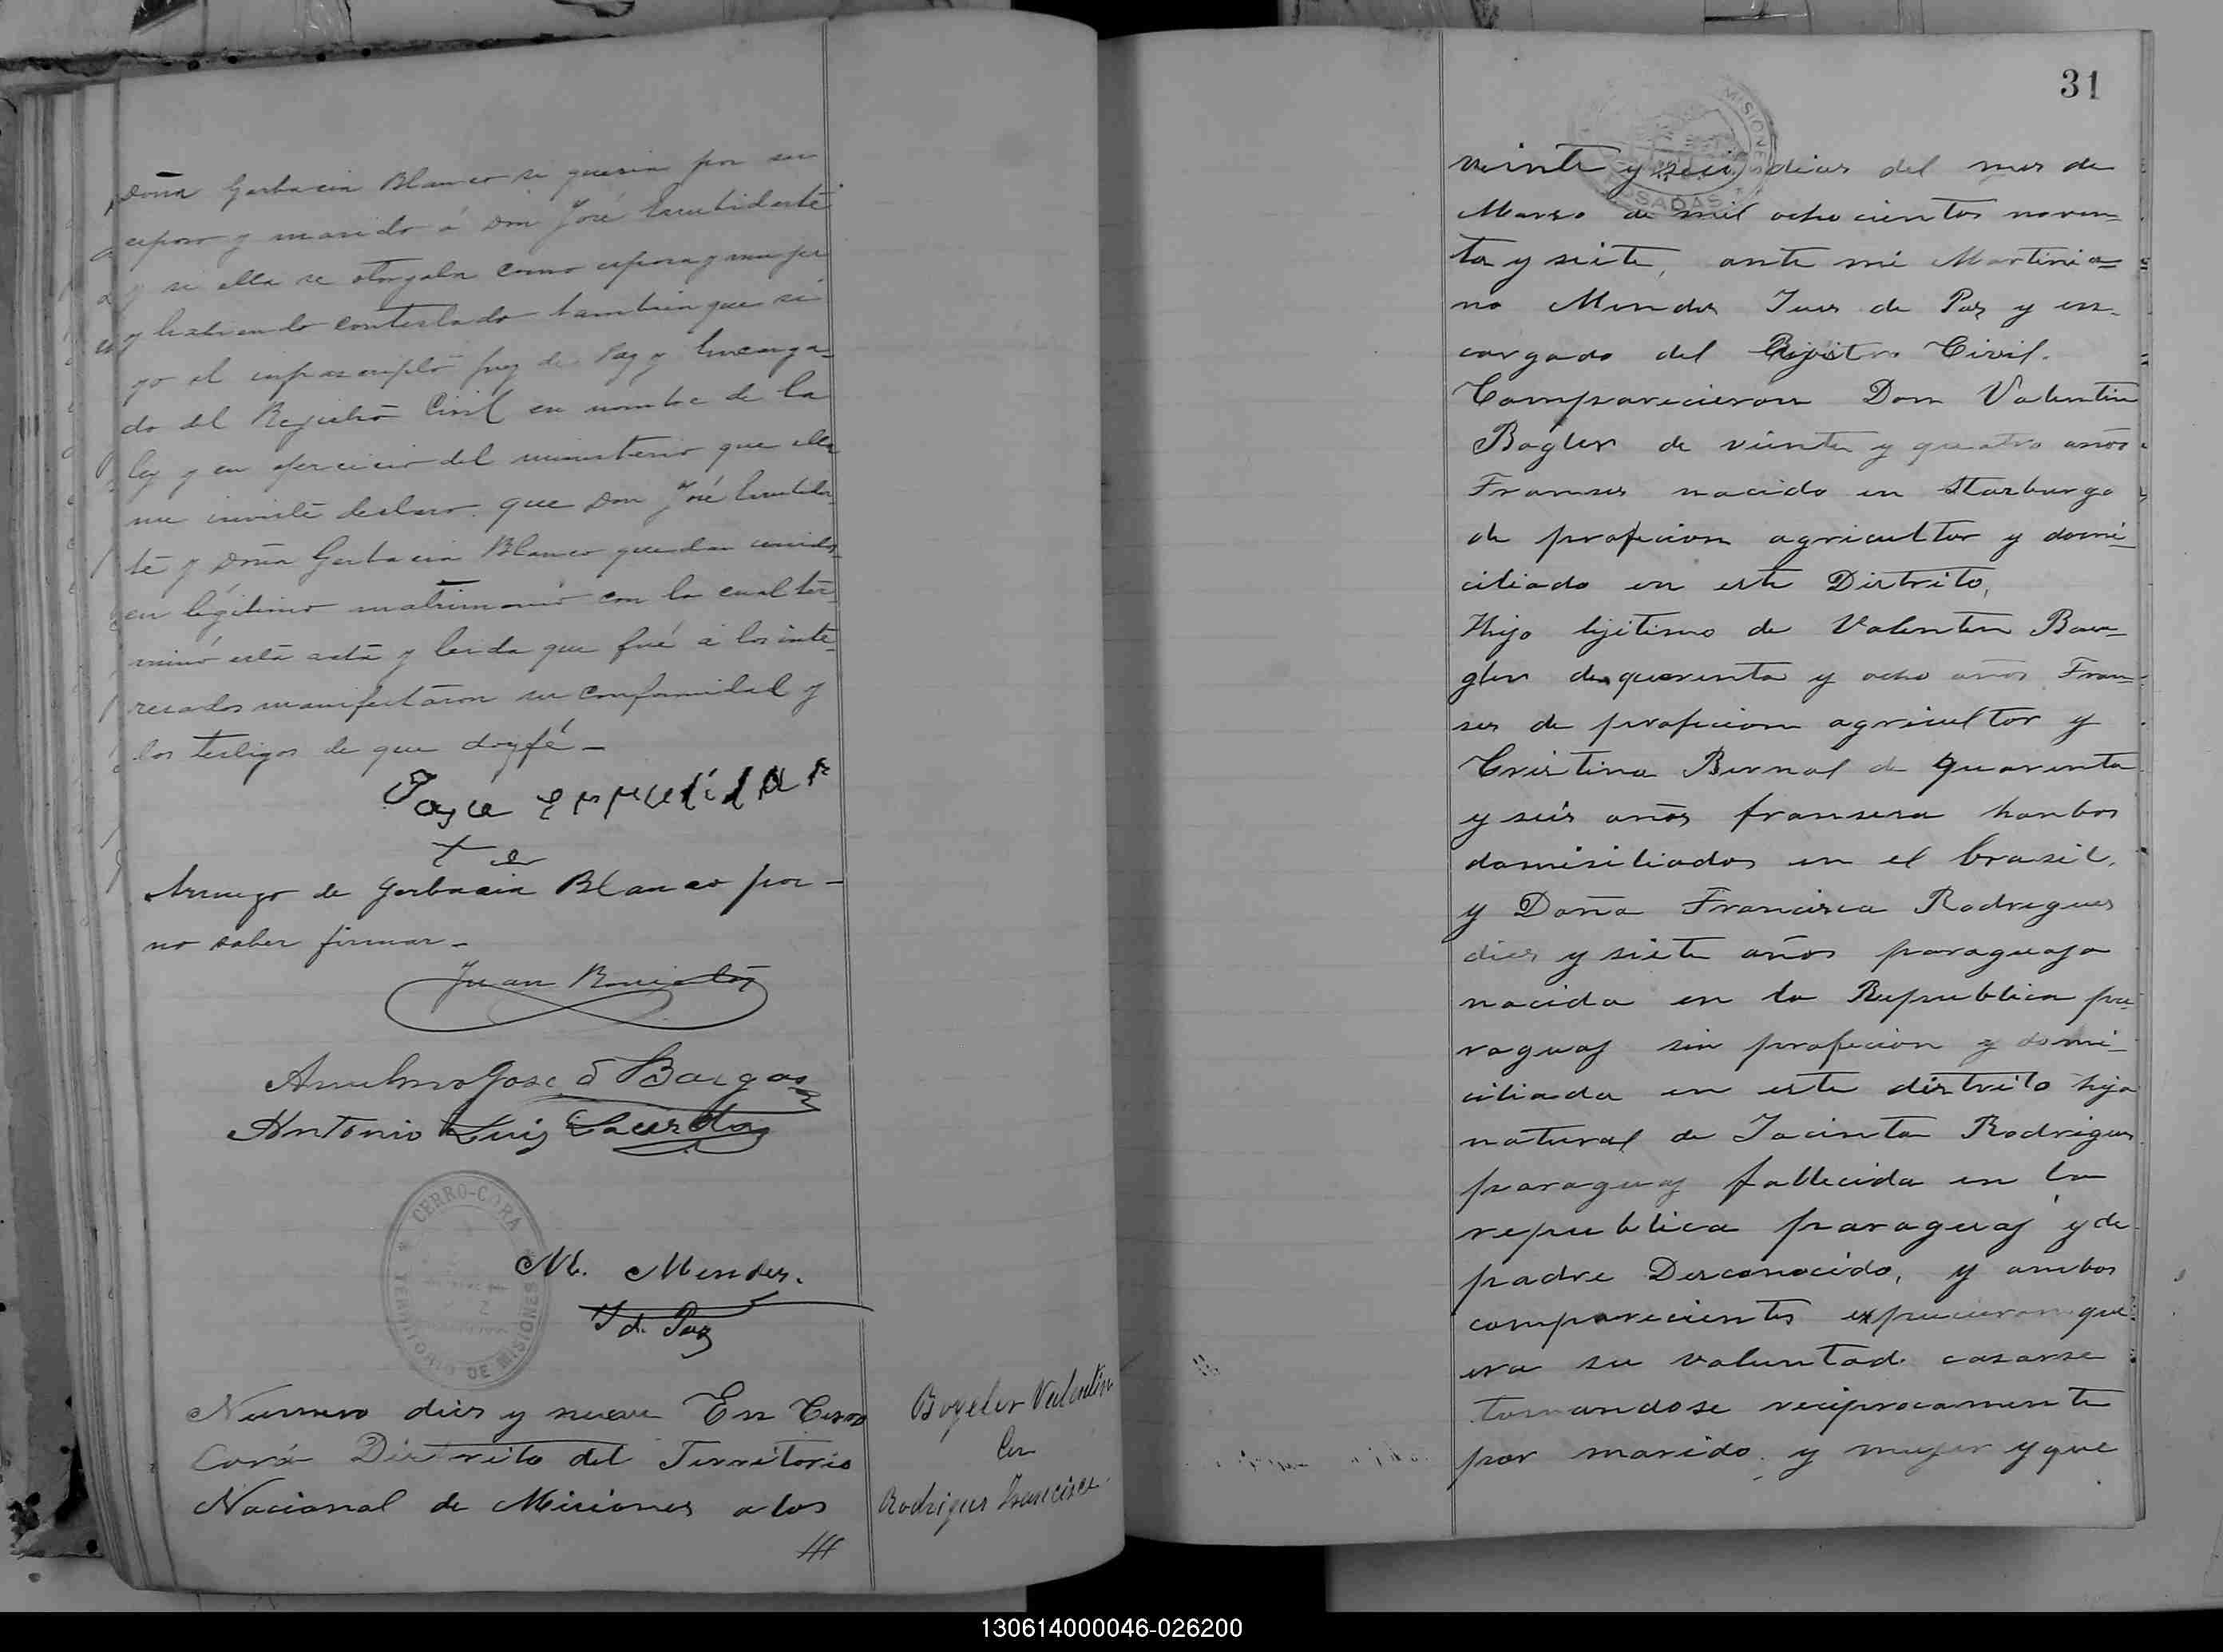 Doña Gerbacia Blanco si queria por su
esposo y marido á Don José
y si ella se otorgaba como esposa y mujer
y habiendo contestado tambien que si
yo el infrascripto Juez de Paz y Encarga-
do del Registro Civil en nombre de la
ley y en ejercicio del ministerio que ella
me inviste declaro que Don José
te y Doña Gerbacia Blanco quedan unidos
en legítimo matrimonio con lo cual ter-
minó esta acta y leida que fué á los inte-
resados manifestaron su conformidad y
los testigos de que doy fé—
te
Arruego de Gerbacia Blanco por—
no saber firmar—
Juan
Anselmo Jose d Bargas
Antonio Luis
CERRO-CORA
TERRITORIO DE MISIONES
M. Mendes.
J d. Paz
Numero dies y nueve En Cerro
Corá Distrito del Territorio
Nacional de Misiones a los
Bogeler Valentin
Con
Rodrigues Francisca
31
MISIONES
POSADAS
veinte y seis dias del mes de
Marso de mil ochocientos noven-
ta y siete, ante mi Martinia-
no Mendes Jues de Pas y en-
cargado del Rejistro Civil.
Comparecieron Don Valentin
Bogler de viente y quatro años
Franses nacido en Starburgo
de profecion agricultor y domi-
ciliado en este Distrito,
Hijo lijitimo de Valentin Bau-
gler de querenta y ocho años Fran-
ses de profecion agricultor y
Cristina Bernal de quarenta
y seis años fransesa hanbos
domisiliados en el brasil,
y Doña Francisca Rodregues
dies y siete años paraguaja
nacida en la Republica pa-
raguaj sin profecion y domi-
ciliada en este distrito hija
natural de Jacinta Rodrigues
paraguaj fallecida en la
republica paraguaj y de
padre Desconocido, y ambos
comparecientes expucieron que
era su voluntad casarse
tomandose reciprocamente
por marido y mujer y que
130614000046-026200